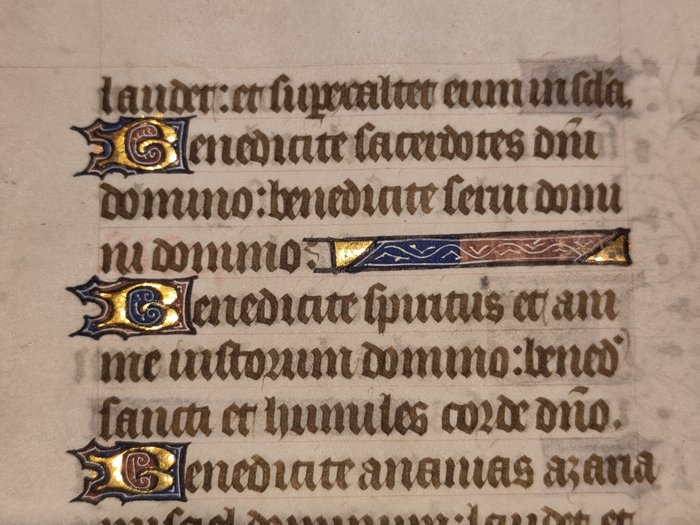 laudet: et superexaltet eum in scl̃a.
Benedicite sacerdotes dñi
domino: benedicite serui domi
ni domino:
Benedicite spiritus et ani
me iustorum domino: bened̾
sancti et humiles corde dño.
Benedicite ananias azaria
misael dominum: laudet et